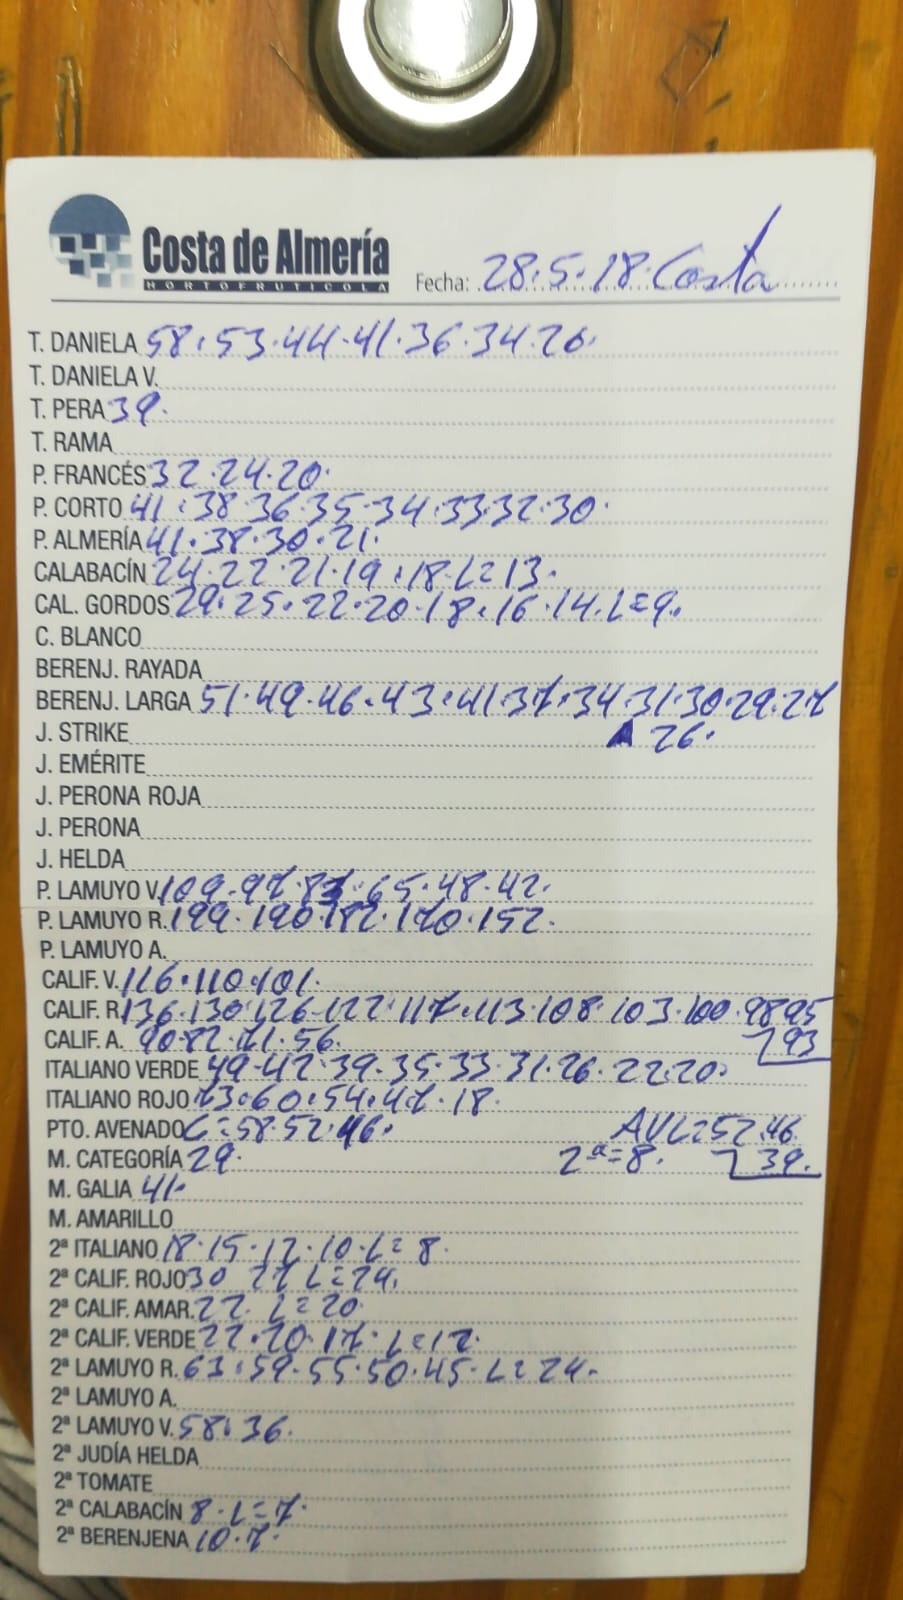 Costa de Almería
HORTOFRUTICOLA
Fecha: 28.5.18. Costa
T. DANIELA 58.53.44.41.36.34.26.
T. DANIELA V.
T. PERA 39.
T. RAMA
P. FRANCÉS 32.24.20.
P. CORTO 41.38.36.35.34.33.32.30.
P. ALMERÍA 41.38.30.21.
CALABACÍN 24.22.21.19.18.L=13.
CAL. GORDOS 29.25.22.20.18.16.14.L=9.
C. BLANCO
BERENJ. RAYADA
BERENJ. LARGA 51.49.46.43.41.37.34.31.30.29.27
J. STRIKE 26.
J. EMÉRITE
J. PERONA ROJA
J. PERONA
J. HELDA
P. LAMUYO V. 109.97. .65.48.42.
P. LAMUYO R. 199.190.182.170.152.
P. LAMUYO A.
CALIF. V. 116.110.101.
CALIF. R. 136.130.126.122.117.113.108.103.100.98 95
CALIF. A. 90.82.71.56. 93
ITALIANO VERDE 49.42.39.35.33.31.26.22.20.
ITALIANO ROJO 73.60.54.47.18.
PTO. AVENADO C=58.52.46. AVL=52.46
M. CATEGORÍA 29. 2ª=8. 39.
M. GALIA 41.
M. AMARILLO
2ª ITALIANO 18.15.12.10.L=8.
2ª CALIF. ROJO 30 27 L=24.
2ª CALIF. AMAR. 22. L=20
2ª CALIF. VERDE 22.20.17.L=12.
2ª LAMUYO R. 63.59.55.50.45.L=24.
2ª LAMUYO A.
2ª LAMUYO V. 58.36.
2ª JUDÍA HELDA
2ª TOMATE
2ª CALABACÍN 8.L=7.
2ª BERENJENA 10.7.